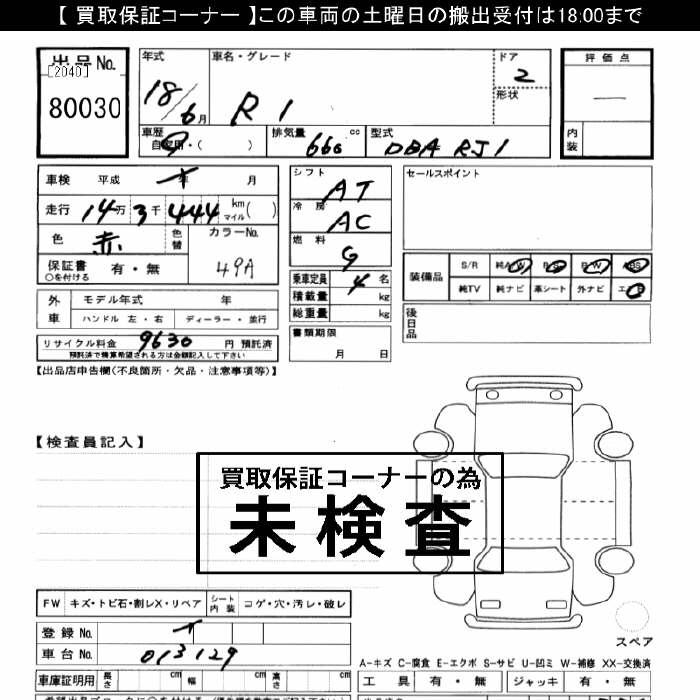 【 買取保証コーナー 】この車両の土曜日の搬出受付は18:00まで
出品No.
[2040]
80030
年式
18/6月
車名・グレード
R 1
ドア
2
形状
評価点
—
内装
車歴
自家用・( )
排気量
660 cc
型式
DBA RJ1
車検 平成 年 月
走行 14万 3千 444 km マイル ( )
色 赤 色替
カラーNo.
49A
保証書 有・無
○を付ける
シフト
AT
冷房
AC
燃料
G
乗車定員 4 名
積載量 kg
総重量 kg
書類期限
月 日
セールスポイント
装備品
S/R 純AW P/S P/W ABS
純TV 純ナビ 革シート 外ナビ
後日品
外車
モデル年式 年
ハンドル 左・右 ディーラー・並行
リサイクル料金 9630 円 預託済
預託済で精算希望される方は金額記入して下さい
【出品店申告欄(不良箇所・欠品・注意事項等)】
【検査員記入】
買取保証コーナーの為
未検査
FW キズ・トビ石・割レX・リペア シート内装 コゲ・穴・汚レ・破レ
登録 No.
車台 No. 013129
車庫証明用 長さ cm 幅 cm 高さ cm
スペア
A-キズ C-腐食 E-エクボ S-サビ U-凹ミ W-補修 XX-交換済
工具 有・無 ジャッキ 有・無